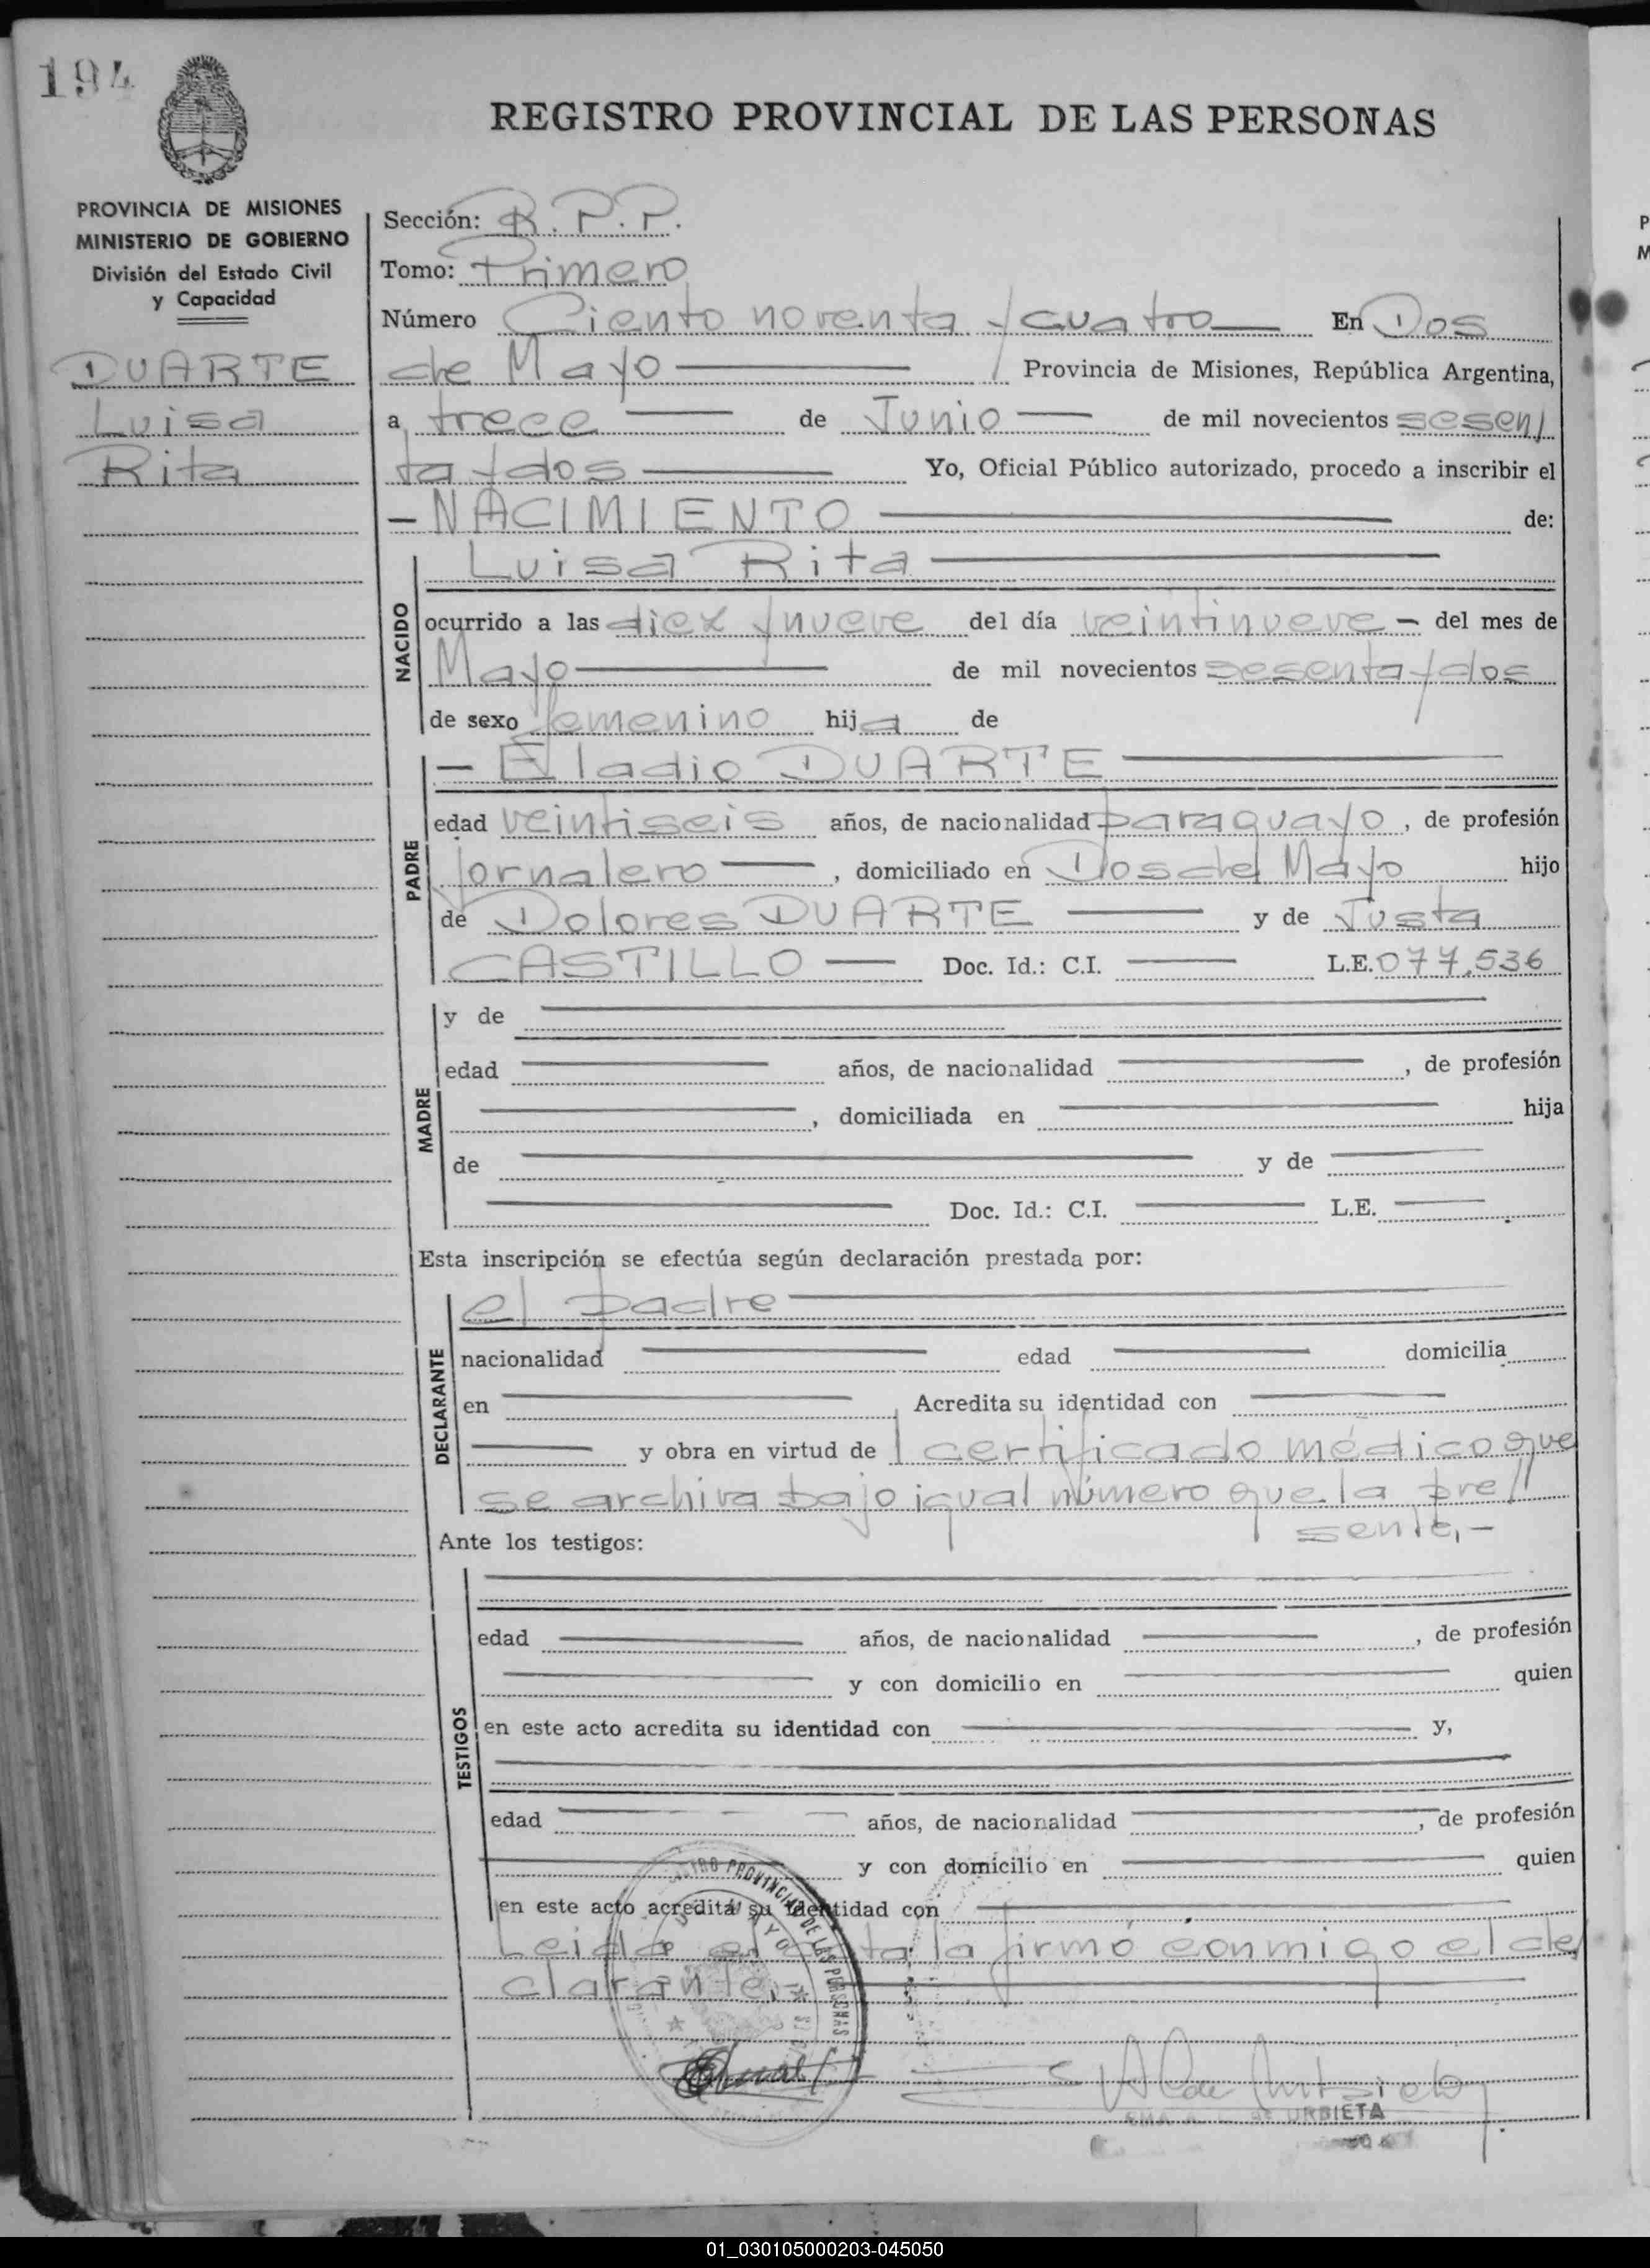 194
REGISTRO PROVINCIAL DE LAS PERSONAS
PROVINCIA DE MISIONES
MINISTERIO DE GOBIERNO
División del Estado Civil
y Capacidad
DUARTE
Luisa
Rita
Sección: R.P.P.
Tomo: Primero
Número Ciento noventa y cuatro En Dos
de Mayo Provincia de Misiones, República Argentina,
a trece de Junio de mil novecientos sesen/
ta y dos Yo, Oficial Público autorizado, procedo a inscribir el
- NACIMIENTO de:
NACIDO
Luisa Rita
ocurrido a las diez y nueve del día veintinueve - del mes de
Mayo de mil novecientos sesenta y dos
de sexo femenino hija de
PADRE
- Eladio DUARTE
edad veintiseis años, de nacionalidad paraguayo, de profesión
jornalero, domiciliado en Dos de Mayo hijo
de Dolores DUARTE y de Justa
CASTILLO Doc. Id.: C.I. L.E. 077.536
MADRE
y de
edad años, de nacionalidad , de profesión
, domiciliada en hija
de y de
Doc. Id.: C.I. L.E.
Esta inscripción se efectúa según declaración prestada por:
DECLARANTE
el padre
nacionalidad edad domicilia
en Acredita su identidad con
y obra en virtud de l certificado médico que
se archiva bajo igual número que la pre//
sente,-
Ante los testigos:
TESTIGOS
edad años, de nacionalidad , de profesión
y con domicilio en quien
en este acto acredita su identidad con y,
edad años, de nacionalidad , de profesión
y con domicilio en quien
en este acto acredita su identidad con
Leida el acta la firmó conmigo el de
clarante,
PROVINCIAL DE LAS PERSONAS
de URBIETA
01_030105000203-045050